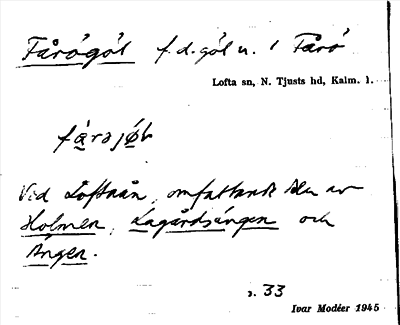 Fårögöl f.d. göl n. i Fårö
Lofta sn, N. Tjusts hd, Kalm. l.
fårəjöl
Vid Loftaån, omfattande
Holmen, Lagårdsängen och
Ängen.
s. 33
Ivar Modéer 1945